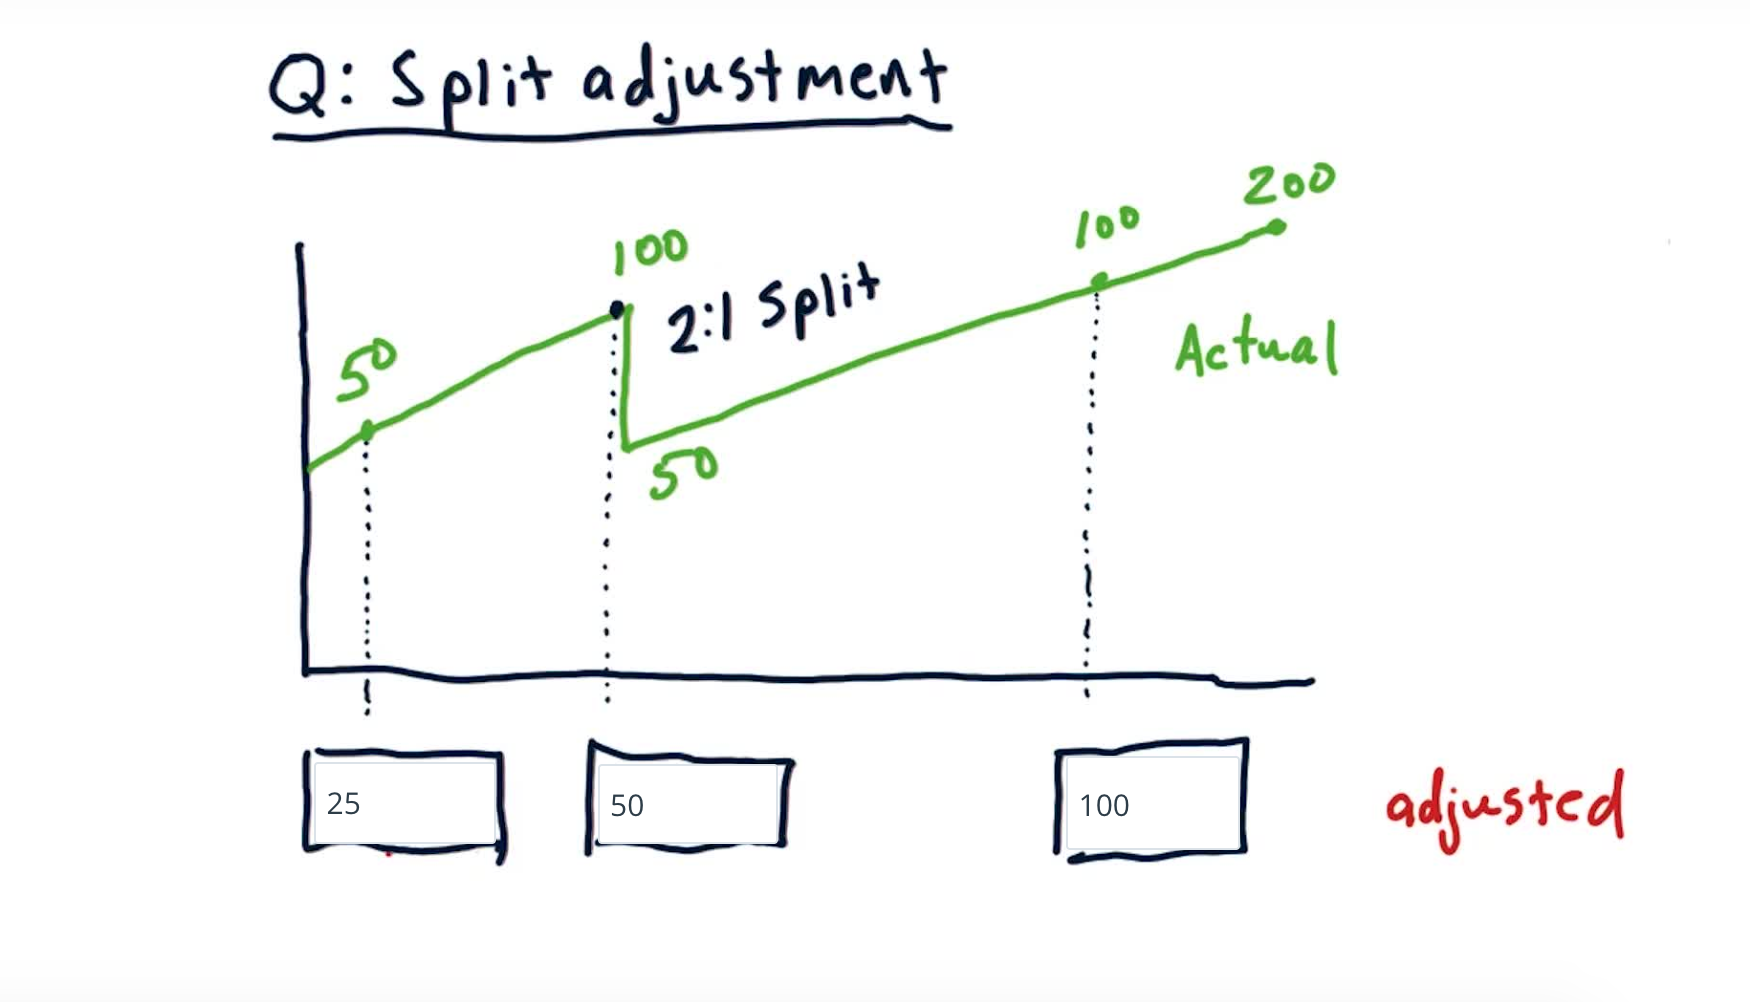 Q: Split adjustment
200
100
100
2:1 Split
50
Actual
50
25
50
100
adjusted